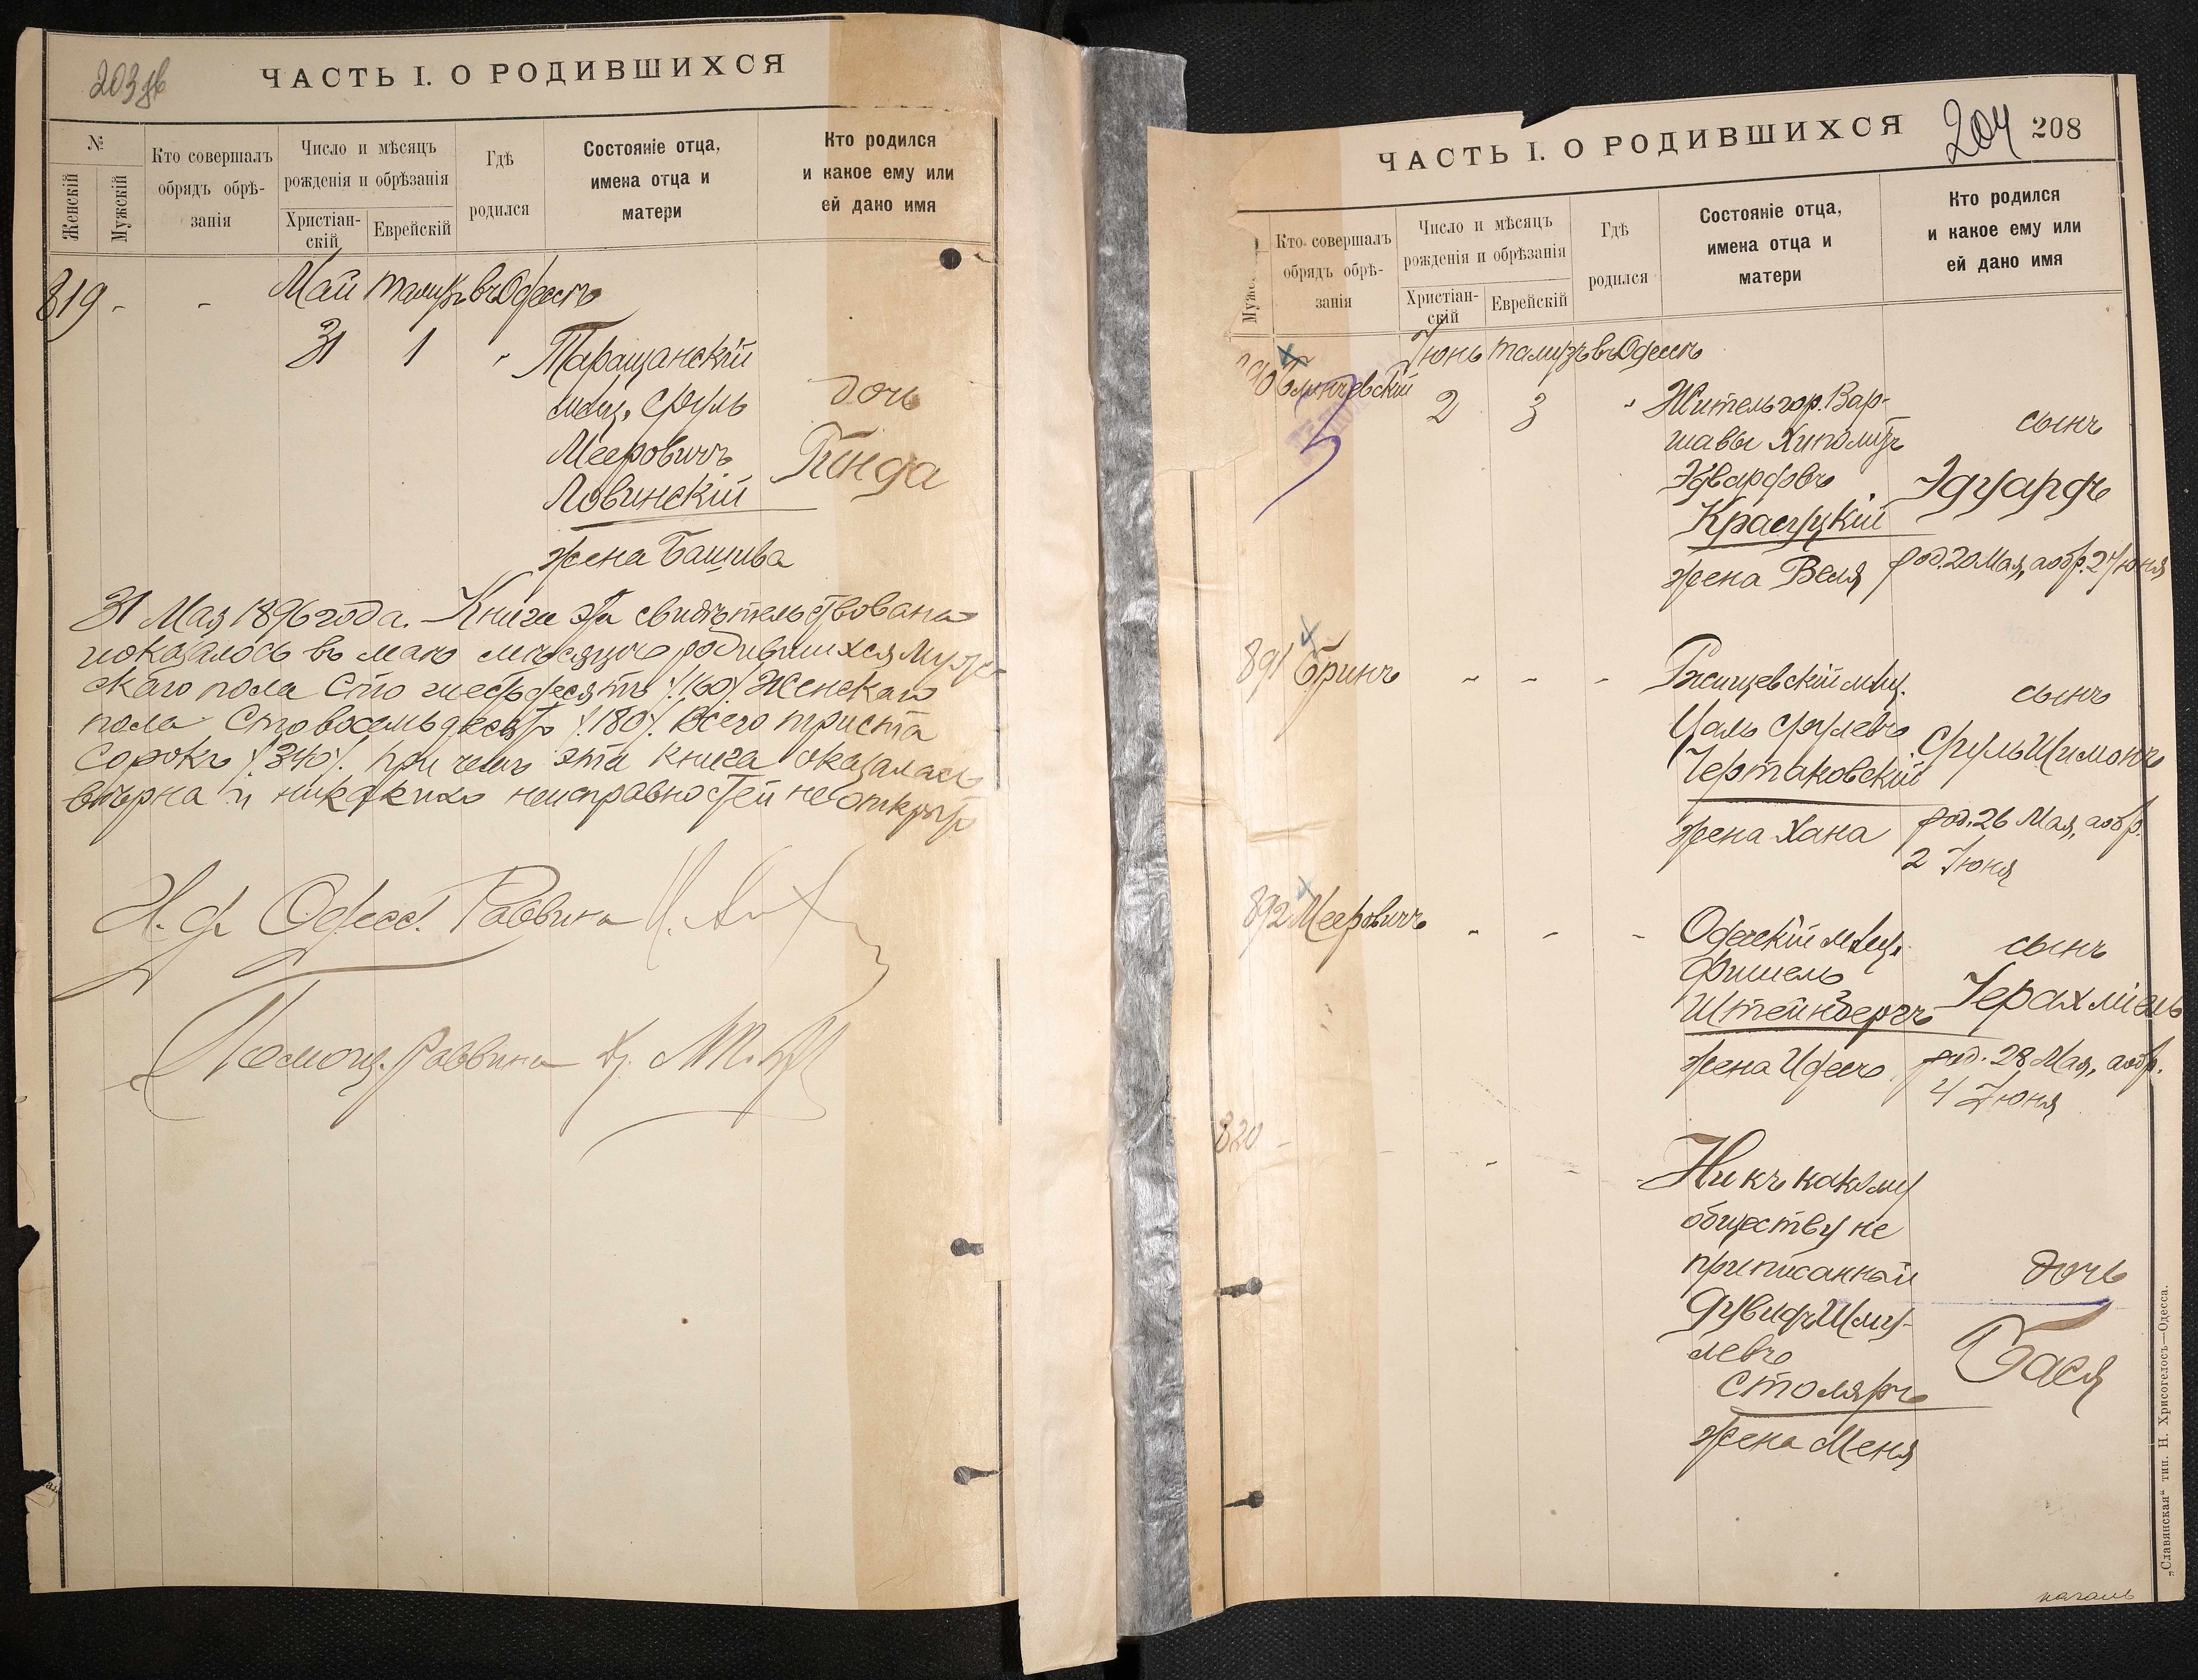 203 об
ЧАСТЬ I. О РОДИВШИХСЯ
№
Женскій
Мужскій
Кто совершалъ
обрядъ обрѣ-
занія
Число и мѣсяцъ
рожденія и обрѣзанія
Христіан-
скій
Еврейскій
Гдѣ
родился
Состояніе отца,
имена отца и
матери
Кто родился
и какое ему или
ей дано имя
819 - - Май тамузъ въ Одессѣ
31 1 " Таращанскій
мѣщ. Сруль
дочь
Мееровичъ
Гинда
Ловинскій
жена Башива
31 Мая 1896 года. Книга эта свидѣтельствована
показалось въ маѣ мѣсяцѣ родившихся муже-
скаго пола сто шестьдесятъ /160/ Женскаго
пола сто восемьдесятъ /180/. Всего триста
сорокъ /340/. при чемъ эта книга оказалась
вѣрна и никакихъ неисправностей не открыто
И. д. Одесс. Раввина
Помощ. Раввина
ЧАСТЬ I. О РОДИВШИХСЯ
204 208
Муж
Кто совершалъ
обрядъ обрѣ-
занія
Число и мѣсяцъ
рожденія и обрѣзанія
Христіан-
скій
Еврейскій
Гдѣ
родился
Состояніе отца,
имена отца и
матери
Кто родился
и какое ему или
ей дано имя
Іюнь тамузъ въ Одессѣ
2 3 " Житель гор. Вар-
шавы Хиполитъ
сынъ
Эдвардовъ
Эдуардъ
Красуцкій
жена Веля
род. 20 Мая, а обр. 2 Іюня
891 Бринъ - - - Ржищевскій мѣщ.
сынъ
Цаль Срулевъ
Сруль Шимонъ
Чертаковскій
жена Хана
род. 26 Мая, а обр.
2 Іюня
892 Мееровичъ - - - Одесскій мѣщ.
сынъ
Фишель
Іерахміель
Штейнбергъ
жена Идесъ
род. 28 Мая, а обр.
4 Іюня
820 - - - Ни къ какому
обществу не
приписанный
дочь
Дувидъ Шму-
левъ
Бася
Столяръ
жена Меня
„Славянская“ тип. Н. Хрисогелосъ—Одесса.